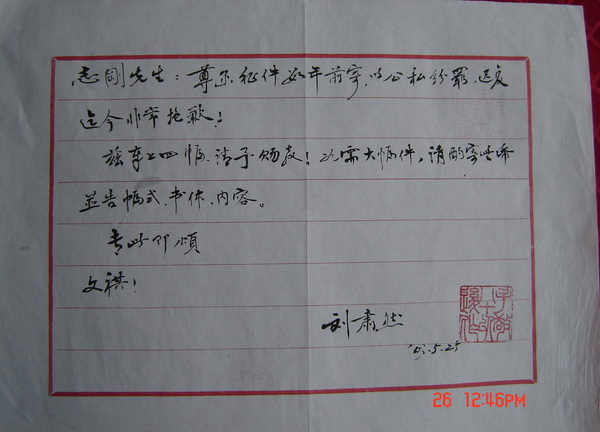 志刚先生：尊示征件如年前寄，以公私纷罹，迟复
迄今非常抱歉！
兹奉上四幅，请予赐教！如需大幅件，请酌寄
并告幅式、书体、内容。
专此即颂
文祺！
刘肃然
5.25
26 12:46PM